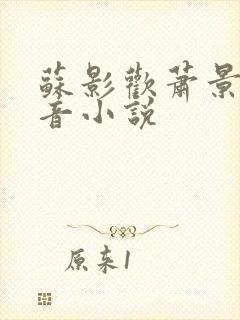 蘇影歡蕭景
音小說
原来1